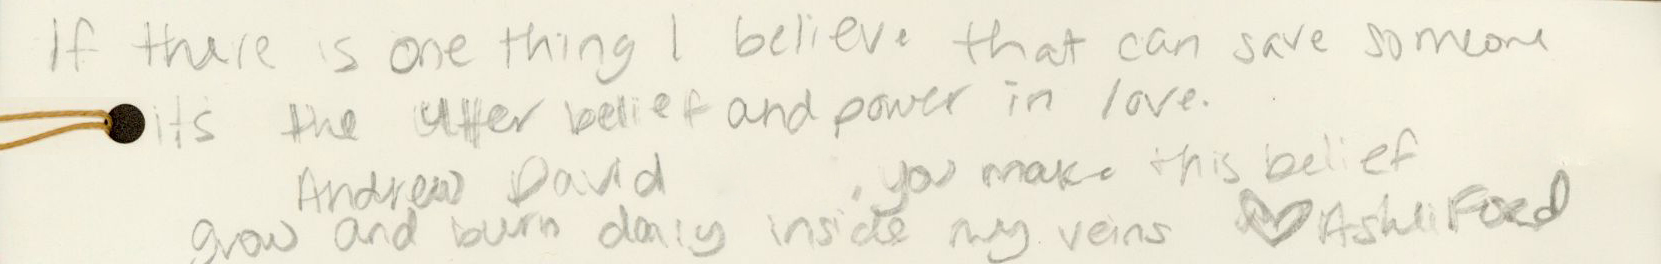 If there is one thing I believe that can save someone
its the utter belief and power in love.
Andrew David , you make this belief
grow and burn daily inside my veins ♡ Ashli Ford